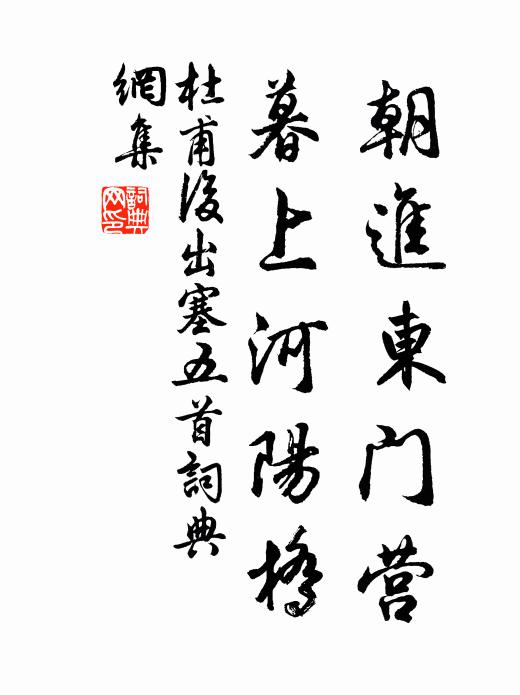 朝進東门营
暮上河陽橋
杜甫後出塞五首詞典
網集
詞典网印